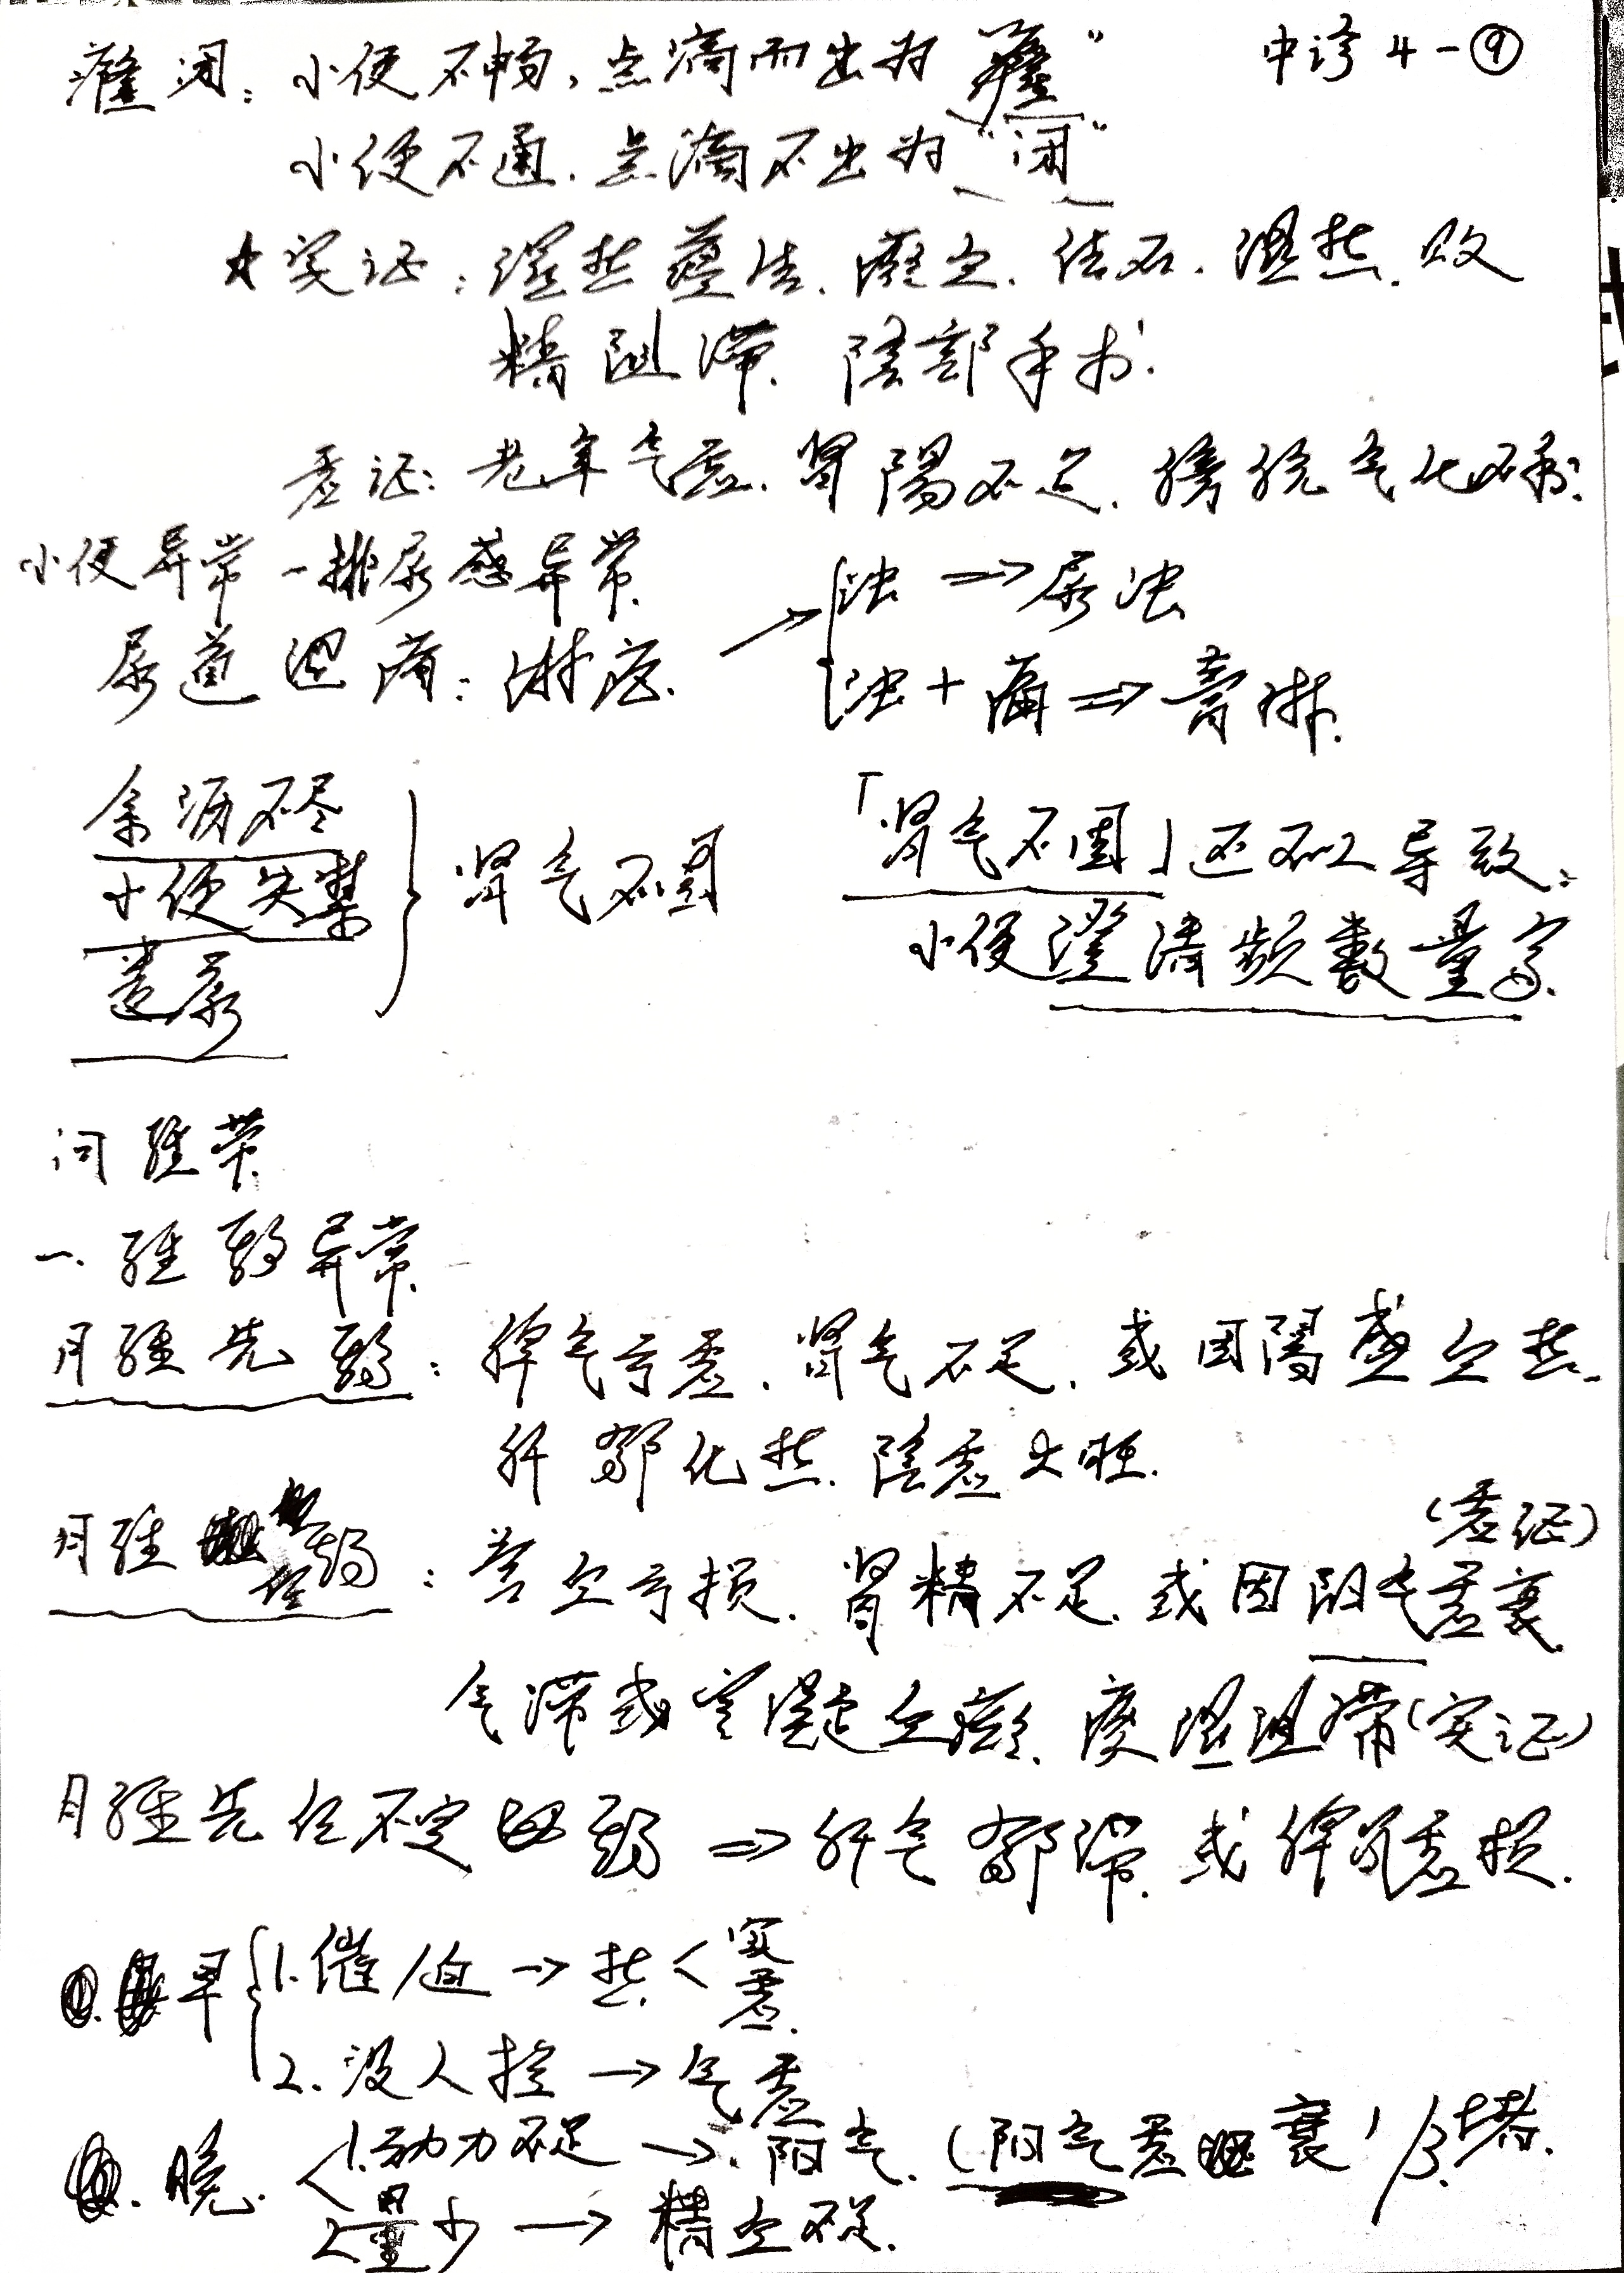 癃闭：小便不畅，点滴而出为“癃” 中诊4-⑨
小便不通，点滴不出为“闭”
实证：湿热蕴结、瘀血、结石、湿热、败
精阻滞、陰部手术.
虚证：老年气虚、肾陽不足、膀胱气化不利.
小便异常-排尿感异常.
尿道涩痛：淋症. → 浊 ⇒ 尿浊
浊+痛 ⇒ 膏淋.
余沥不尽
小便失禁
遗尿
肾气不固
「肾气不固」还可以导致：
小便澄清频數量多.
问經带
一. 經期异常.
月經先期：脾气亏虚、肾气不足、或因陽盛血热、
肝鬱化热、陰虚火旺.
月经后期：营血亏损、肾精不足、或因阳气虚衰 (虚证)
气滞或寒凝血瘀、痰湿阻滞(实证)
月經先后不定期 ⇒ 肝气鬱滞、或脾肾虚损.
早 1.催/迫 → 热 < 实 虚.
2.没人控 → 气虚
晚. 1.动力不足 → 阳气. (阳气虚衰) / 3.堵.
2.量少 → 精血不足.